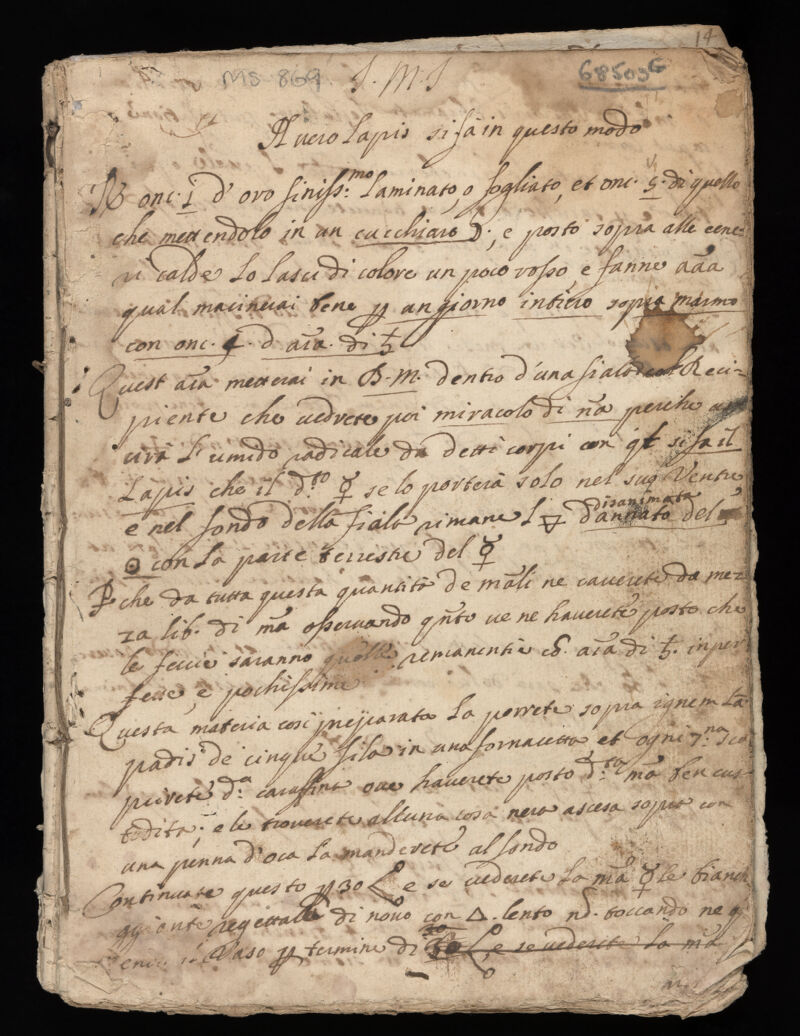 14
MS 869. J. M. J 68503G
Il vero Lapis si fà in questo modo
℞ onc. 1 d'oro finiss:mo Laminato, o fogliato, et onc. 5. di quello
che mettendolo in un cucchiaro ☽, e posto sopra alle cene=
ri calde Lo Lasci di colore un poco rosso e fanne aãa
qual macinerai bene ꝑ un giorno intiero sopra marmo
con onc. 4. d aãa. di ♄
Quest aãa metterai in B. M. dentro d'una fiala col Reci=
piente che vedrete poi miracolo di nãa perche
cirà L'umido radicale da detti corpi con ql si fa il
Lapis che il d.to ☿ se lo porterà solo nel suo Ventre
e nel fondo della fiala rimane L 🜃 disanimata dannato del
☉ con La parte terrestre del ☿
P che da tutta questa quantità de mãli ne caverete da mez
za lib. di mãa osservando qñto ve ne haverete posto che
le feccie saranno quelle remanentie cõ. aãa di ♄. inper
fette, e pochissime
Questa materia così preparata La porrete sopra ignem Lã
padis de cinque fila in una fornacetta et ogni 7.na sco
prirete d.a caraffina ove haverete posto d.ta mãa ben cus
todita; e le troverete alcuna cosa nera ascesa sopra con
una penna d'oca La manderete al fondo
Continuate questo ꝑ 30 e se vederete La mãa ☿ le bianch
di novo con △. lento nõ. toccando ne
Vaso ꝑ termine di 30 e se vederete La mãa